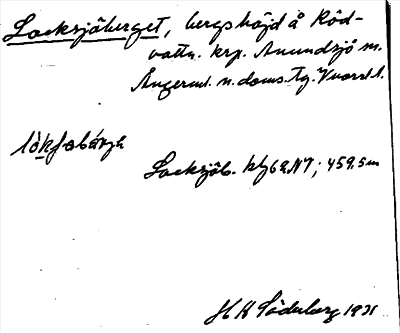 Locksjöberget, bergshöjd å Röd-
vattn. krp. Anundsjö sn.
Ångerml. n. doms. Tg. V:norrl. l.
Locksjöb. kbl 62 NV; 459.5 m
H K Söderberg 1931